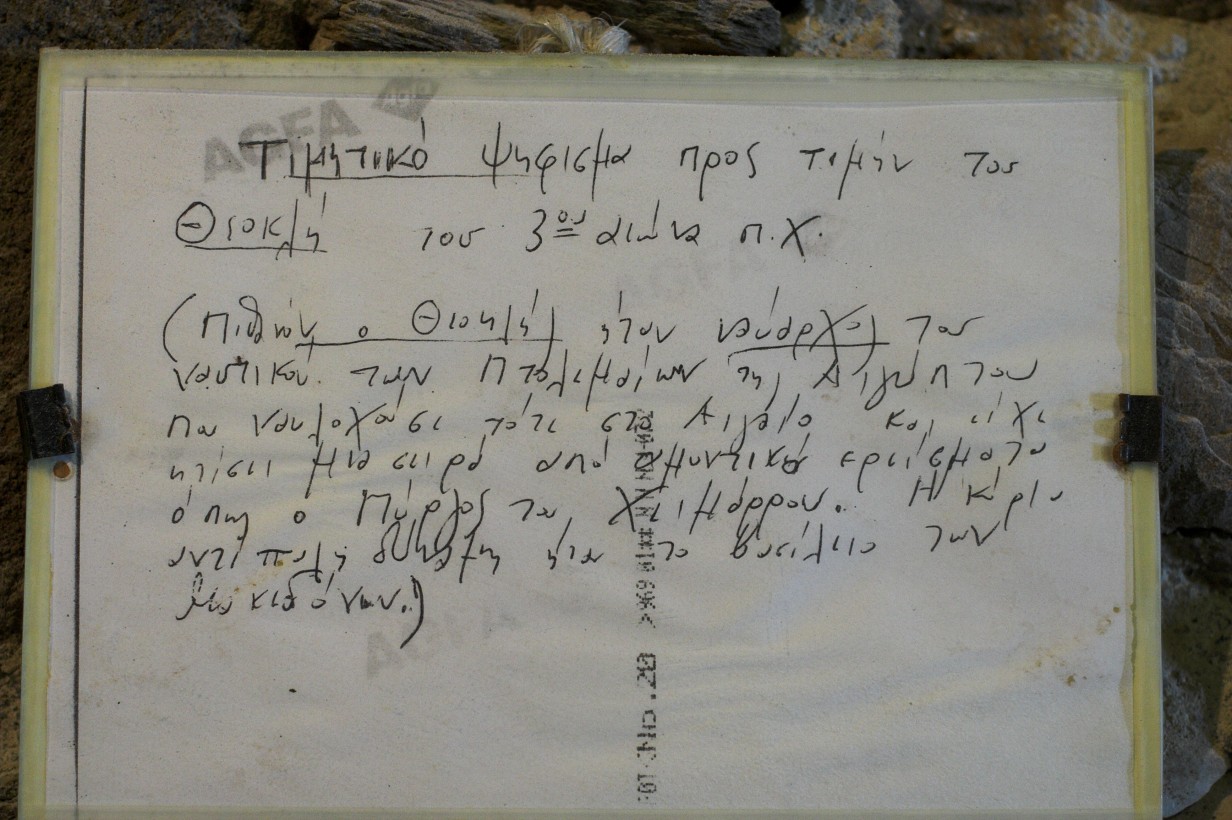 AGFA
Τιμητικό ψήφισμα προς τιμήν του
Θεοκλή του 3ου αιώνα π.χ.
(Πιθανόν ο Θεοκλή) ήταν ναύαρχος του
ναυτικού των Πτολεμαίων της Αιγύπτου
που ναυλοχούσε τότε στο Αιγαίο και είχε
κτίσει μια σειρά από αμυντικά ερείσματα
όπως ο Πύργος του Χειμάρρου. Η κύρια
αντίπαλη δύναμη ήταν το βασίλειο των
Μακεδόνων.)
AGFA
AGFA